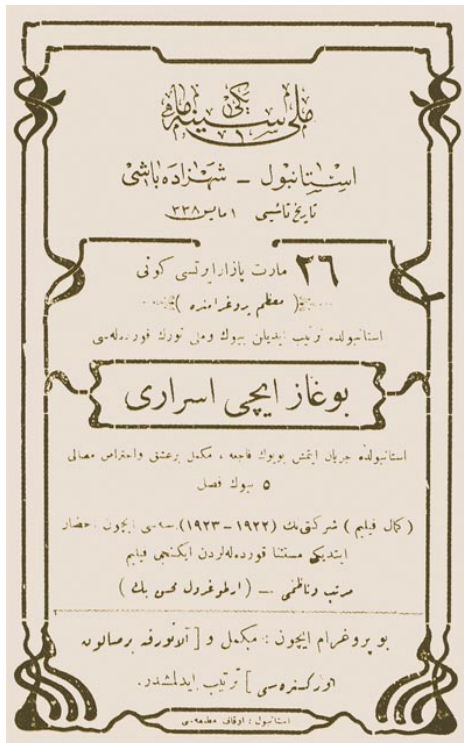 يكى
ملى سينه ما
استانبول – شهزاده باشى
تاريخ تأسيسى ١ مايس ٣٣٨
٢٦ مارت پازار ايرتسى كونى
( معظم پروغرامنده )
استانبولده ترتيب ايديلن بيوك وملى تورك قوردەلەسى
بوغاز ايچى اسرارى
استانبولده جريان ايتمش بويوك فاجعه ، مكمل برعشق واحتراص مصالى
٥ بيوك فصل
( كمال فيلم ) شركتى نك (١٩٢٢ – ١٩٢٣) سنه سى ايچون احضار
ايتديكى مستثنا قوردەلەلردن ايكنجى فيلم
مرتب وناظمى — ( ارطوغرول محسن بك )
بو پروغرام ايچون : مكمل و [ آلاتورقه برصالون
اوركستره سى ] ترتيب ايدلمشدر .
استانبول : اوقاف مطبعه سى